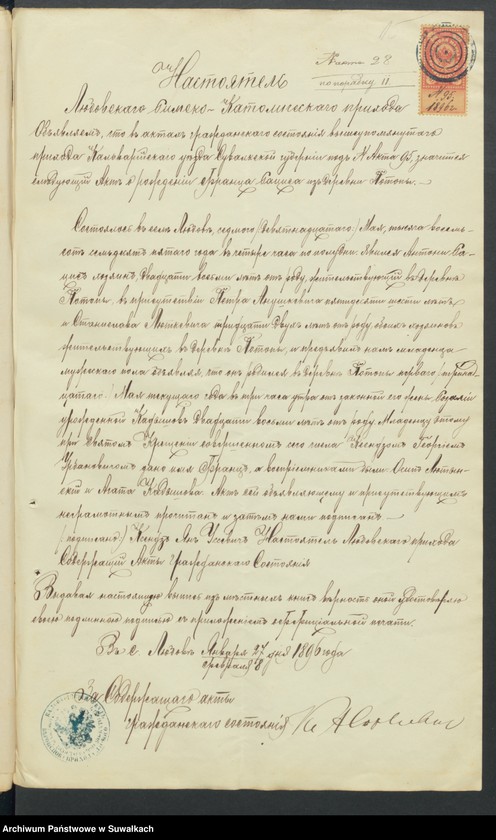 № акта 28
по порядку 11
Настоятель
Людовскаго Римско-Католическаго прихода
Объявляетъ, что въ актахъ гражданскаго состоянія вышеупомянутаго
прихода Кальварійскаго уѣзда Сувалкской губерніи подъ № Акта 95 значится
слѣдующій Актъ о рожденіи Франца изъ деревни
Состоялось въ селѣ Людовѣ, седьмого /девятнадцатаго/ Мая, тысяча восемь-
сотъ семьдесятъ пятаго года въ четыре часа по полудни. Явился Антонъ
двадцати восьми лѣтъ отъ роду, жительствующій въ деревнѣ
въ присутствіи Петра пятидесяти шести лѣтъ
и Станислава тридцати двухъ лѣтъ отъ роду, обоихъ
жительствующихъ въ деревнѣ и предъявилъ намъ младенца
мужескаго пола объявляя, что онъ родился въ деревнѣ перваго /тринад-
цатаго/ Мая текущаго года въ три часа утра отъ законной его жены Розаліи
урожденной двадцати восьми лѣтъ отъ роду. Младенцу этому
при Святомъ Крещеніи совершенномъ сего числа Ксендзомъ Георгіемъ
Урбановичемъ дано имя Францъ, а воспріемниками были Осипъ
и Агата Актъ сей объявляющему и присутствующимъ
неграмотнымъ прочитанъ и затѣмъ нами подписанъ —
/подписано/ Ксендзъ Янъ Настоятель Людовскаго прихода
Содержащій Акты Гражданскаго Состоянія
Выдавая настоящую выпись изъ мѣстныхъ книгъ вѣрность оной удостовѣряю
своею подлинною подписью съ приложеніемъ оффиціальной печати.
Въ с. Людовѣ Января 27 дня 1896 года
Февраля 8
За Содержащаго акты
Гражданскаго состоянія
Archiwum Państwowe w Suwałkach